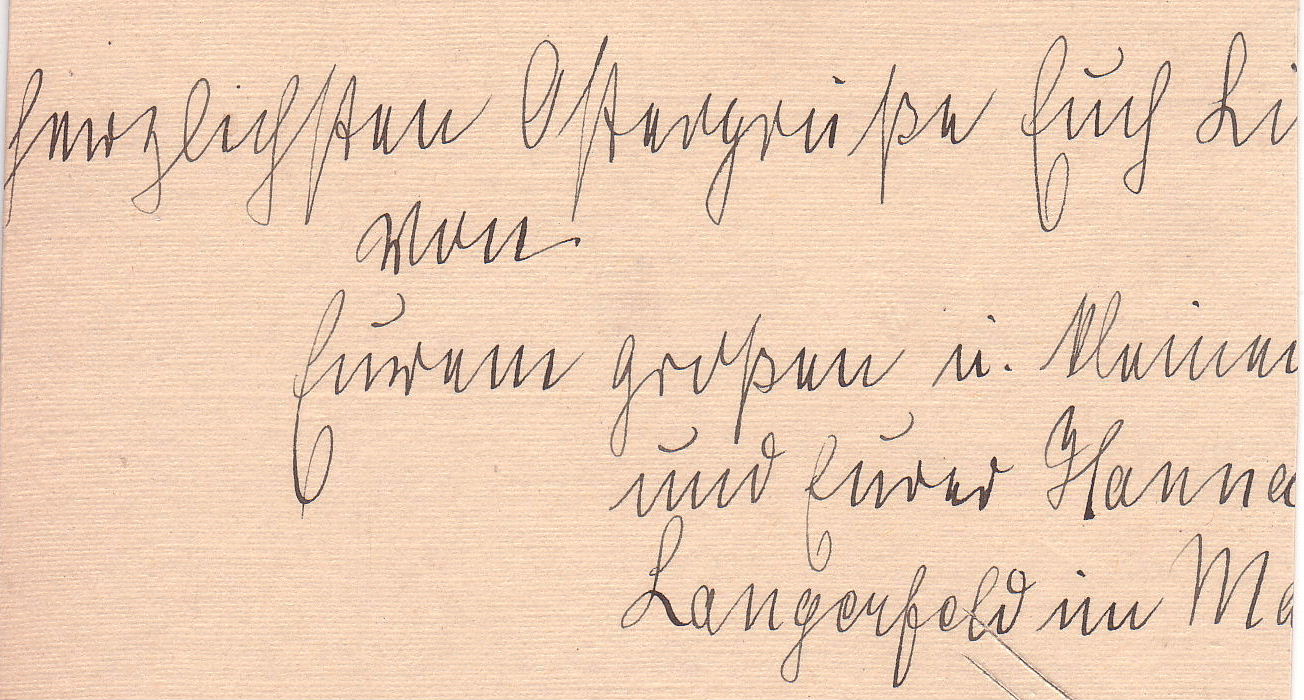 herzlichsten Ostergrüße Euch Li
von
Eurem großen u. kleinen
und Eurer Hanna
Langerfeld im Ma